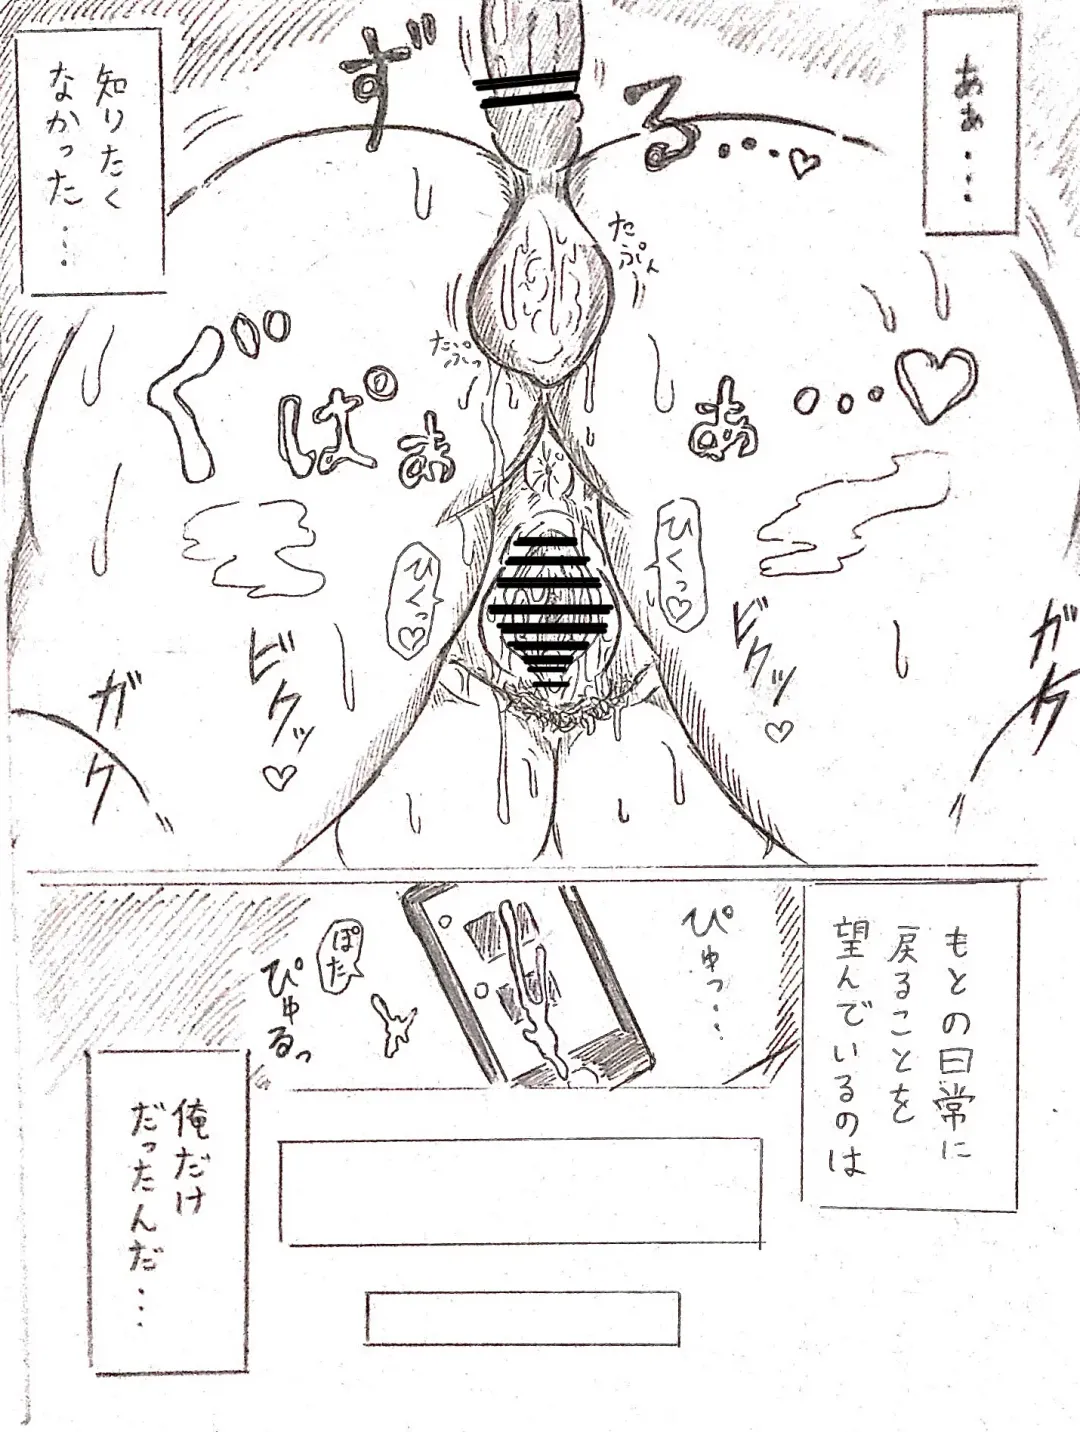 ああ…
ずる…♡
知りたく
なかった…
たぷん
たぷっ
ぐぱぁぁ…♡
ひくっ♡
ひくっ♡
ビクッ♡
ビクッ♡
ガク
ガク
もとの日常に
戻ることを
望んでいるのは
ぴゅっ…
ぽた
ぴゅるっ
俺だけ
だったんだ…